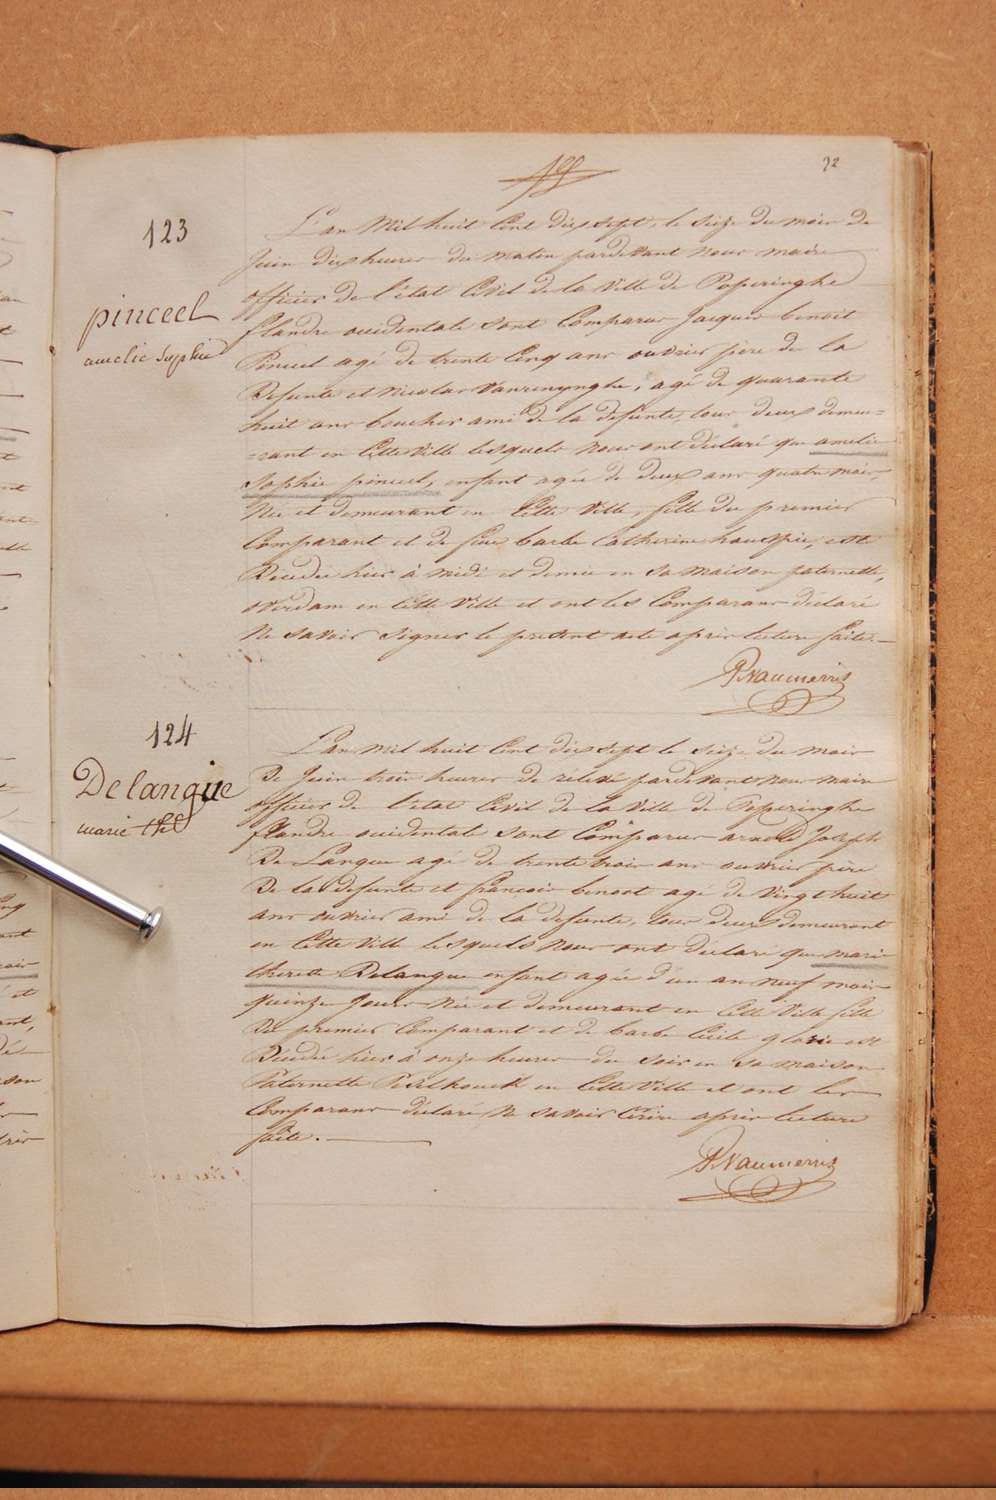 32
123
pinceel
amelie sophie
L'an Mil huit Cent dix sept, le seize du mois de
Juin dix heures du matin pardevant nous maire
officier de l'état Civil de la ville de Poperinghe
flandre occidentale sont Comparus Jacques benoit
Pinceel agé de trente Cinq ans ouvrier père de la
Defunte et Nicolas Vanrenynghe, agé de quarante
huit ans boucher ami de la defunte, tous deux demeu=
=rant en Cette Ville lesquels nous ont déclaré que amelie
Sophie pinceel, enfant agée de deux ans quatre mois,
Née et demeurant en Cette Ville, fille du premier
Comparant et de feue barbe Catherine hauspie, est
Decedée hier à midi et demie en sa maison paternelle,
overdam en Cette Ville et ont les Comparans déclaré
Ne savoir Signer le present acte après lecture faite.
124
Delangue
marie thé
L'an mil huit Cent dix sept le seize du mois
De Juin trois heures de rélevé pardevant nous maire
officier de l'état Civil de la Ville de Popperinghe
flandre occidentale sont Comparus arnold Joseph
De Langue agé de trente trois ans ouvrier père
De la Defunte et françois benoot agé de Vingt huit
ans ouvrier ami de la defunte, tous deux demeurant
en Cette Ville lesquels nous ont déclaré que marie
therese Delangue enfant agée d'un an neuf mois
quinze jours Née et demeurant en Cette Ville fille
Du premier Comparant et de barbe Cecile glorie est
Décedée hier à onze heures du soir en sa maison
Paternelle en Cette Ville et ont les
Comparans déclaré Ne savoir Ecrire après lecture
faite.